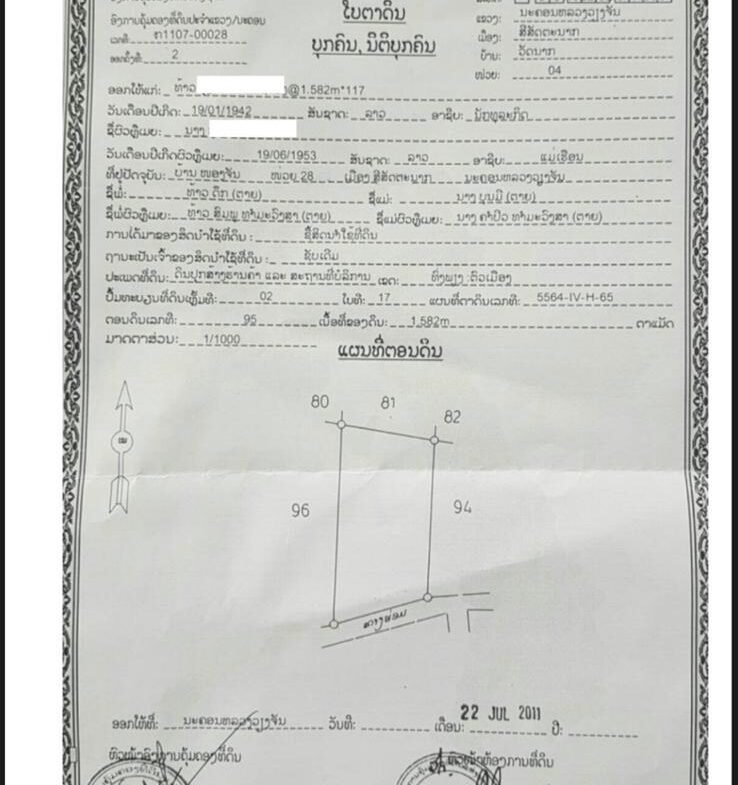 ອົງການຄຸ້ມຄອງທີ່ດິນປະຈຳແຂວງ/ນະຄອນ
ເລກທີ: ກ1107-00028
ອອກຄັ້ງທີ: 2
ໃບຕາດິນ
ບຸກຄົນ, ນິຕິບຸກຄົນ
ແຂວງ: ນະຄອນຫລວງວຽງຈັນ
ເມືອງ: ສີສັດຕະນາກ
ບ້ານ: ວັດນາກ
ໜ່ວຍ: 04
ອອກໃຫ້ແກ່: ທ້າວ @1.582m*117
ວັນເດືອນປີເກີດ: 19/01/1942 ສັນຊາດ: ລາວ ອາຊີບ: ນັກທຸລະກິດ
ຊື່ຜົວຫຼືເມຍ: ນາງ
ວັນເດືອນປີເກີດຜົວຫຼືເມຍ: 19/06/1953 ສັນຊາດ: ລາວ ອາຊີບ: ແມ່ເຮືອນ
ທີ່ຢູ່ປັດຈຸບັນ: ບ້ານ ໜອງຈັນ ໜ່ວຍ 28 ເມືອງ ສີສັດຕະນາກ ນະຄອນຫລວງວຽງຈັນ
ຊື່ພໍ່: ທ້າວ ຕຶກ (ຕາຍ) ຊື່ແມ່: ນາງ ບຸນມີ (ຕາຍ)
ຊື່ພໍ່ຜົວຫຼືເມຍ: ທ້າວ (ຕາຍ) ຊື່ແມ່ຜົວຫຼືເມຍ: ນາງ (ຕາຍ)
ການໄດ້ມາຂອງສິດນຳໃຊ້ທີ່ດິນ : ຊື້ສິດນຳໃຊ້ທີ່ດິນ
ຖານະເປັນເຈົ້າຂອງສິດນຳໃຊ້ທີ່ດິນ : ຊັບເດີມ
ປະເພດທີ່ດິນ: ດິນປຸກສ້າງຮ້ານຄ້າ ແລະ ສະຖານທີ່ບໍລິການ ເຂດ: ທົ່ງພຽງ :ຕົວເມືອງ
ປຶ້ມທະບຽນທີ່ດິນເຫຼັ້ມທີ: 02 ໃບທີ: 17 ແຜນທີ່ຕາດິນເລກທີ: 5564-IV-H-65
ຕອນດິນເລກທີ: 95 ເນື້ອທີ່ຂອງດິນ: 1.582m ຕາແມັດ
ມາດຕາສ່ວນ: 1/1000
ແຜນທີ່ຕອນດິນ
80 81 82
96 94
ອອກໃຫ້ທີ່: ນະຄອນຫລວງວຽງຈັນ ວັນທີ: ເດືອນ: 22 JUL 2011 ປີ:
ຫົວໜ້າອົງການຄຸ້ມຄອງທີ່ດິນ ຫົວໜ້າຫ້ອງການທີ່ດິນ